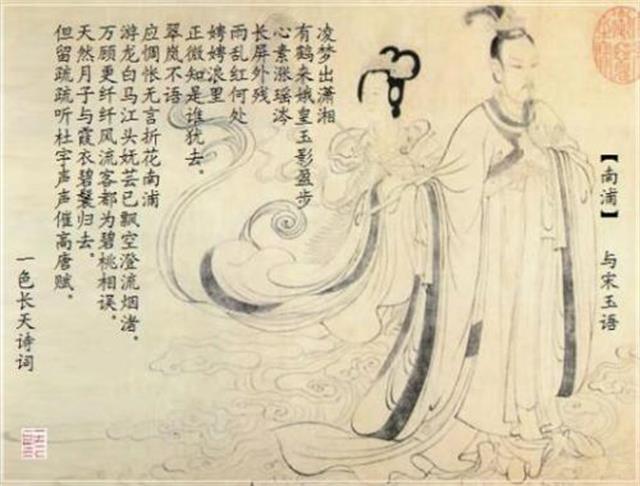 【南浦】 与宋玉语
凌梦出潇湘
有鹤来娥皇玉影盈步
心素涨瑶涔
长屏外残
雨乱红何处
娉娉浪里
正微知是谁犹去。
翠岚不语
应惆怅无言折花南浦
游龙白马江头妩芸已飘空澄流烟渚。
万顾更纤纤风流客都为碧桃相误。
天然月子与霞衣碧鬟归去。
但留疏疏听杜宇声声催高唐赋。
一色长天诗词